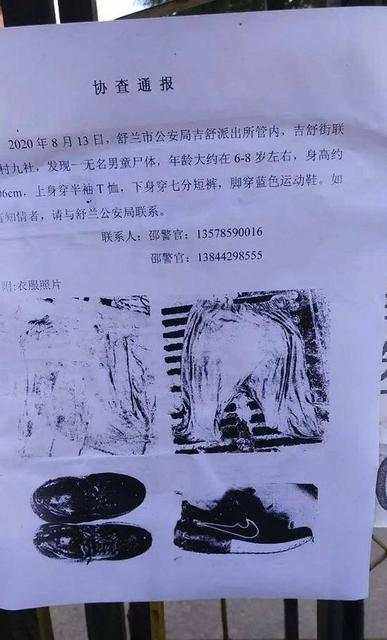 协查通报
2020年8月13日，舒兰市公安局吉舒派出所管内，吉舒街联
村九社，发现一无名男童尸体，年龄大约在6-8岁左右，身高约
06cm，上身穿半袖T恤，下身穿七分短裤，脚穿蓝色运动鞋。如
知情者，请与舒兰公安局联系。
联系人：邵警官：13578590016
邵警官：13844298555
附:衣服照片